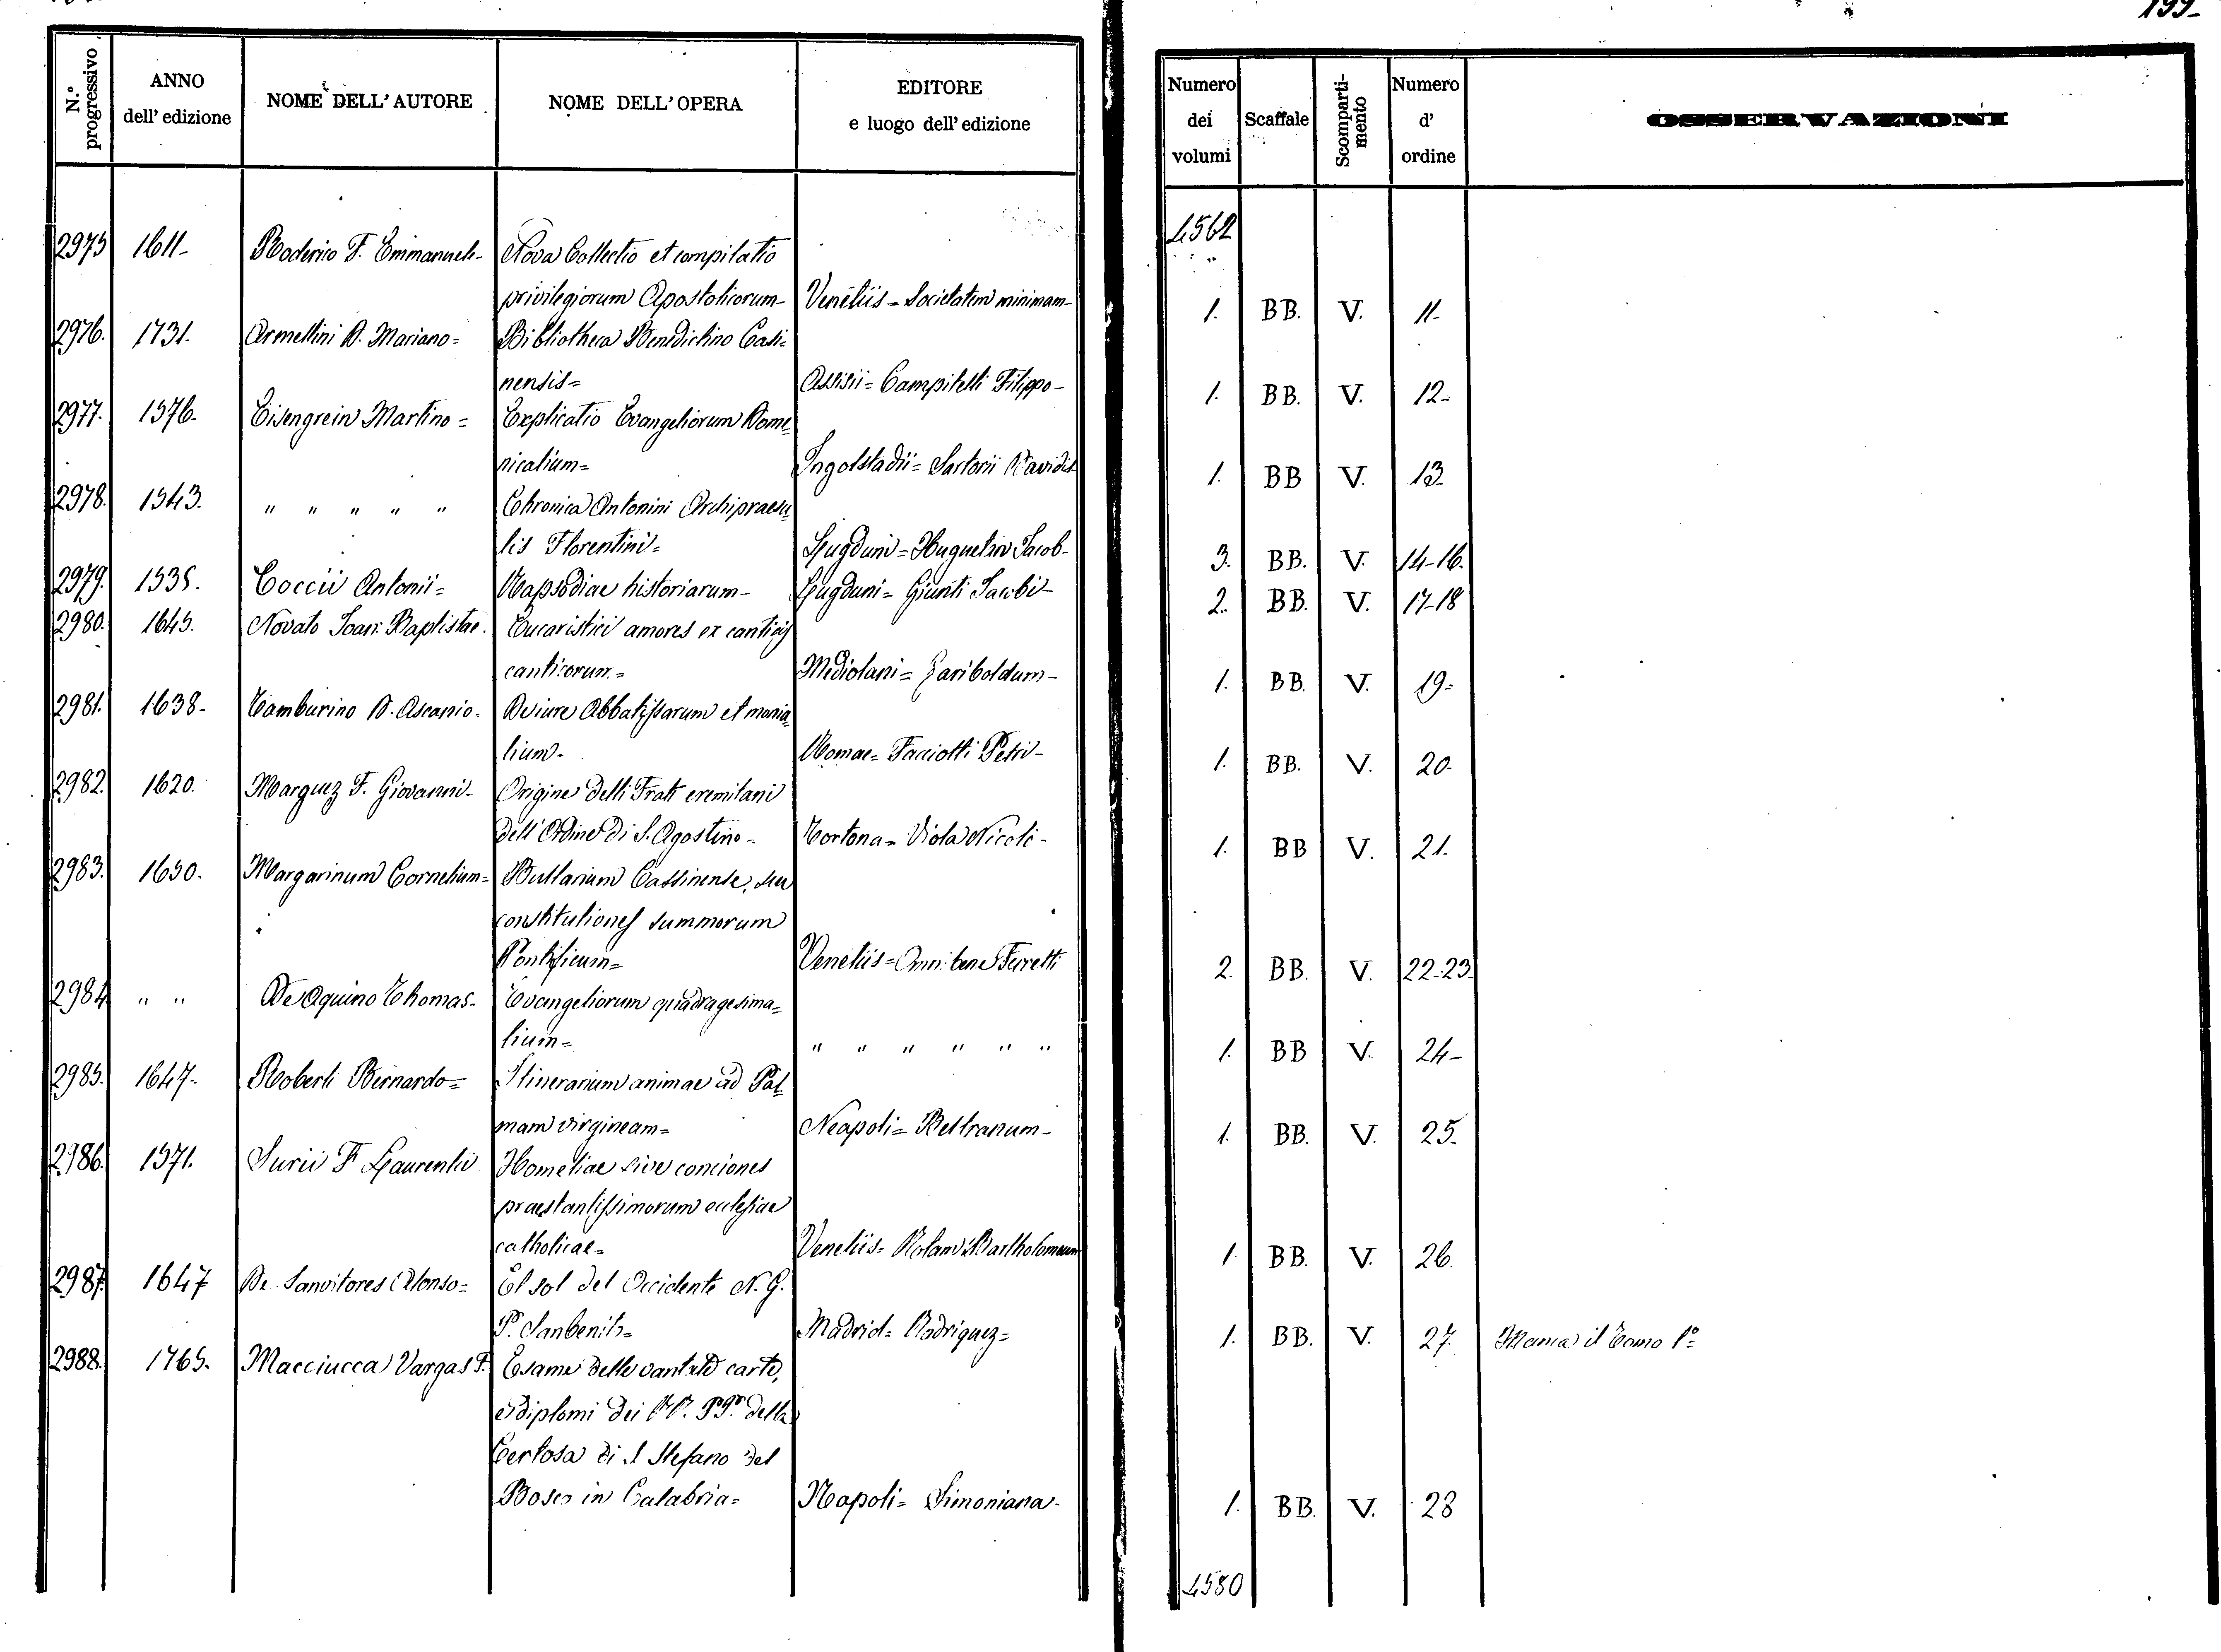 199-
N.º progressivo
ANNO dell'edizione
NOME DELL'AUTORE
NOME DELL'OPERA
EDITORE e luogo dell'edizione
Numero dei volumi
Scaffale
Scomparti-mento
Numero d' ordine
OSSERVAZIONI
4562
2975 1611- Roderico F. Emmanuele- Nova Collectio et compilatio
privilegiorum Apostolicorum- Venetiis- Societatem minimam- 1. BB. V. 11-
2976. 1731. Armellini D. Mariano= Bibliotheca Benedictino Casi=
nensis= Assisii= Campitelli Filippo- 1. BB. V. 12-
2977. 1576. Eisengrein Martino= Explicatio Evangeliorum Dome=
nicalium= Ingolstadii= Sartorii Davidis 1. BB V. 13-
2978. 1543. " " " " " Chronica Antonini Archipraesu=
lis Florentini= Lugduni=Huguetin Jacob- 3. BB. V. 14-16.
2979. 1535. Coccii Antonii= Rapsodiae historiarum- Lugduni= Giunti Jacobi- 2. BB. V. 17-18
2980. 1645. Novato Joan: Baptistae. Eucaristici amores ex canticis
canticorum.= Mediolani= Gariboldum- 1. BB. V. 19-
2981. 1638- Tamburino D. Ascanio. De iure Abbatissarum et monia=
lium- Romae= Facciotti Petri- 1. BB. V. 20-
2982. 1620. Marquez F. Giovanni- Origine delli Frati eremitani
dell'Ordine di S. Agostino- Tortona= Viola Nicolò- 1. BB V. 21.
2983. 1650. Margarinum Cornelium= Bullarium Cassinense, seu
constitutiones summorum
Pontificum= Venetiis= Omnibene Ferretti 2. BB. V. 22-23
2984. " " De Aquino Thomas- Evangeliorum quadragesima=
lium= " " " " " " 1. BB V. 24-
2985. 1647- Roberti Bernardo= Itinerarium animae ad Pal=
mam virgineam= Neapoli= Beltranum- 1. BB. V. 25.
2986. 1571. Surii F. Laurentii Homeliae sive conciones
praestantissimorum eclesiae
catholicae= Venetiis= Rolam Bartholomeum 1. BB. V. 26.
2987. 1647 De Sanvitores Alonso= El sol del Occidente N. G.
P. Sanbenito= Madrid= Rodriguez= 1. BB. V. 27. Manca il Tomo 1º
2988. 1765. Macciucca Vargas F. Esame delle vantate carte,
e diplomi dei RR. PP. della
Certosa di S Stefano del
Bosco in Calabria= Napoli= Simoniana- 1. BB. V. 28
4580